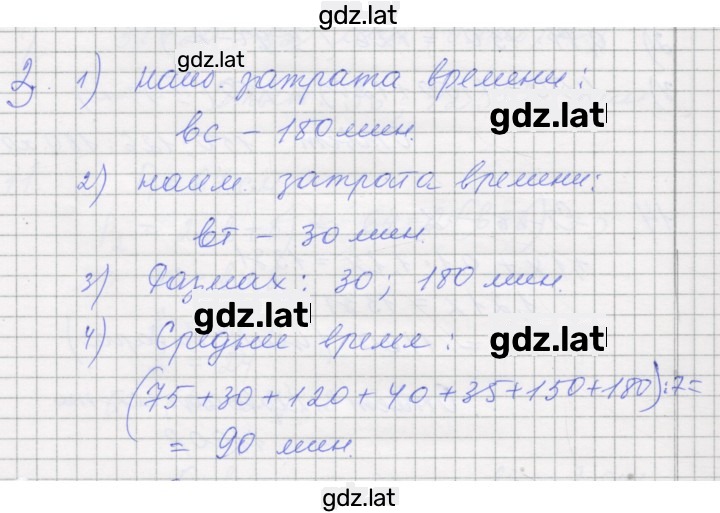 gdz.lat
gdz.lat
3. 1) наиб. затрата времени:
gdz.lat
вс – 180 мин.
2) наим. затрата времени:
вт – 30 мин.
3) Размах: 30; 180 мин.
gdz.lat
4) Среднее время:
gdz.lat
(75+30+120+40+35+150+180):7=
= 90 мин.
gdz.lat